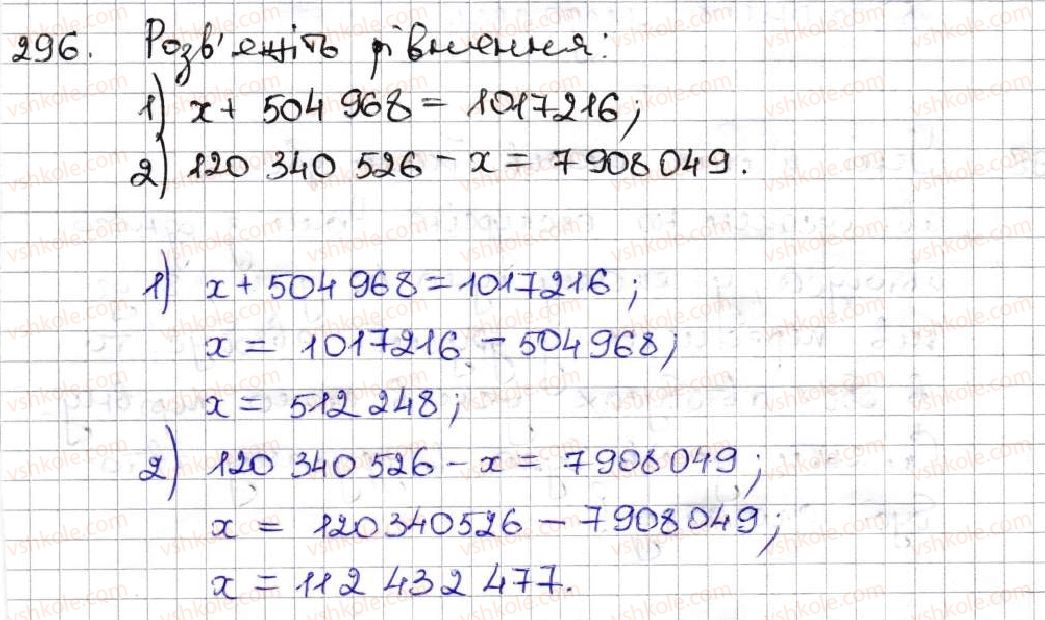 296. Розв'яжіть рівнення:
1) x + 504 968 = 1017216;
2) 120 340 526 - x = 7 908 049.
1) x + 504 968 = 1017216;
x = 1017216 - 504968;
x = 512 248;
2) 120 340 526 - x = 7908049;
x = 120340526 - 7908049;
x = 112 432 477.